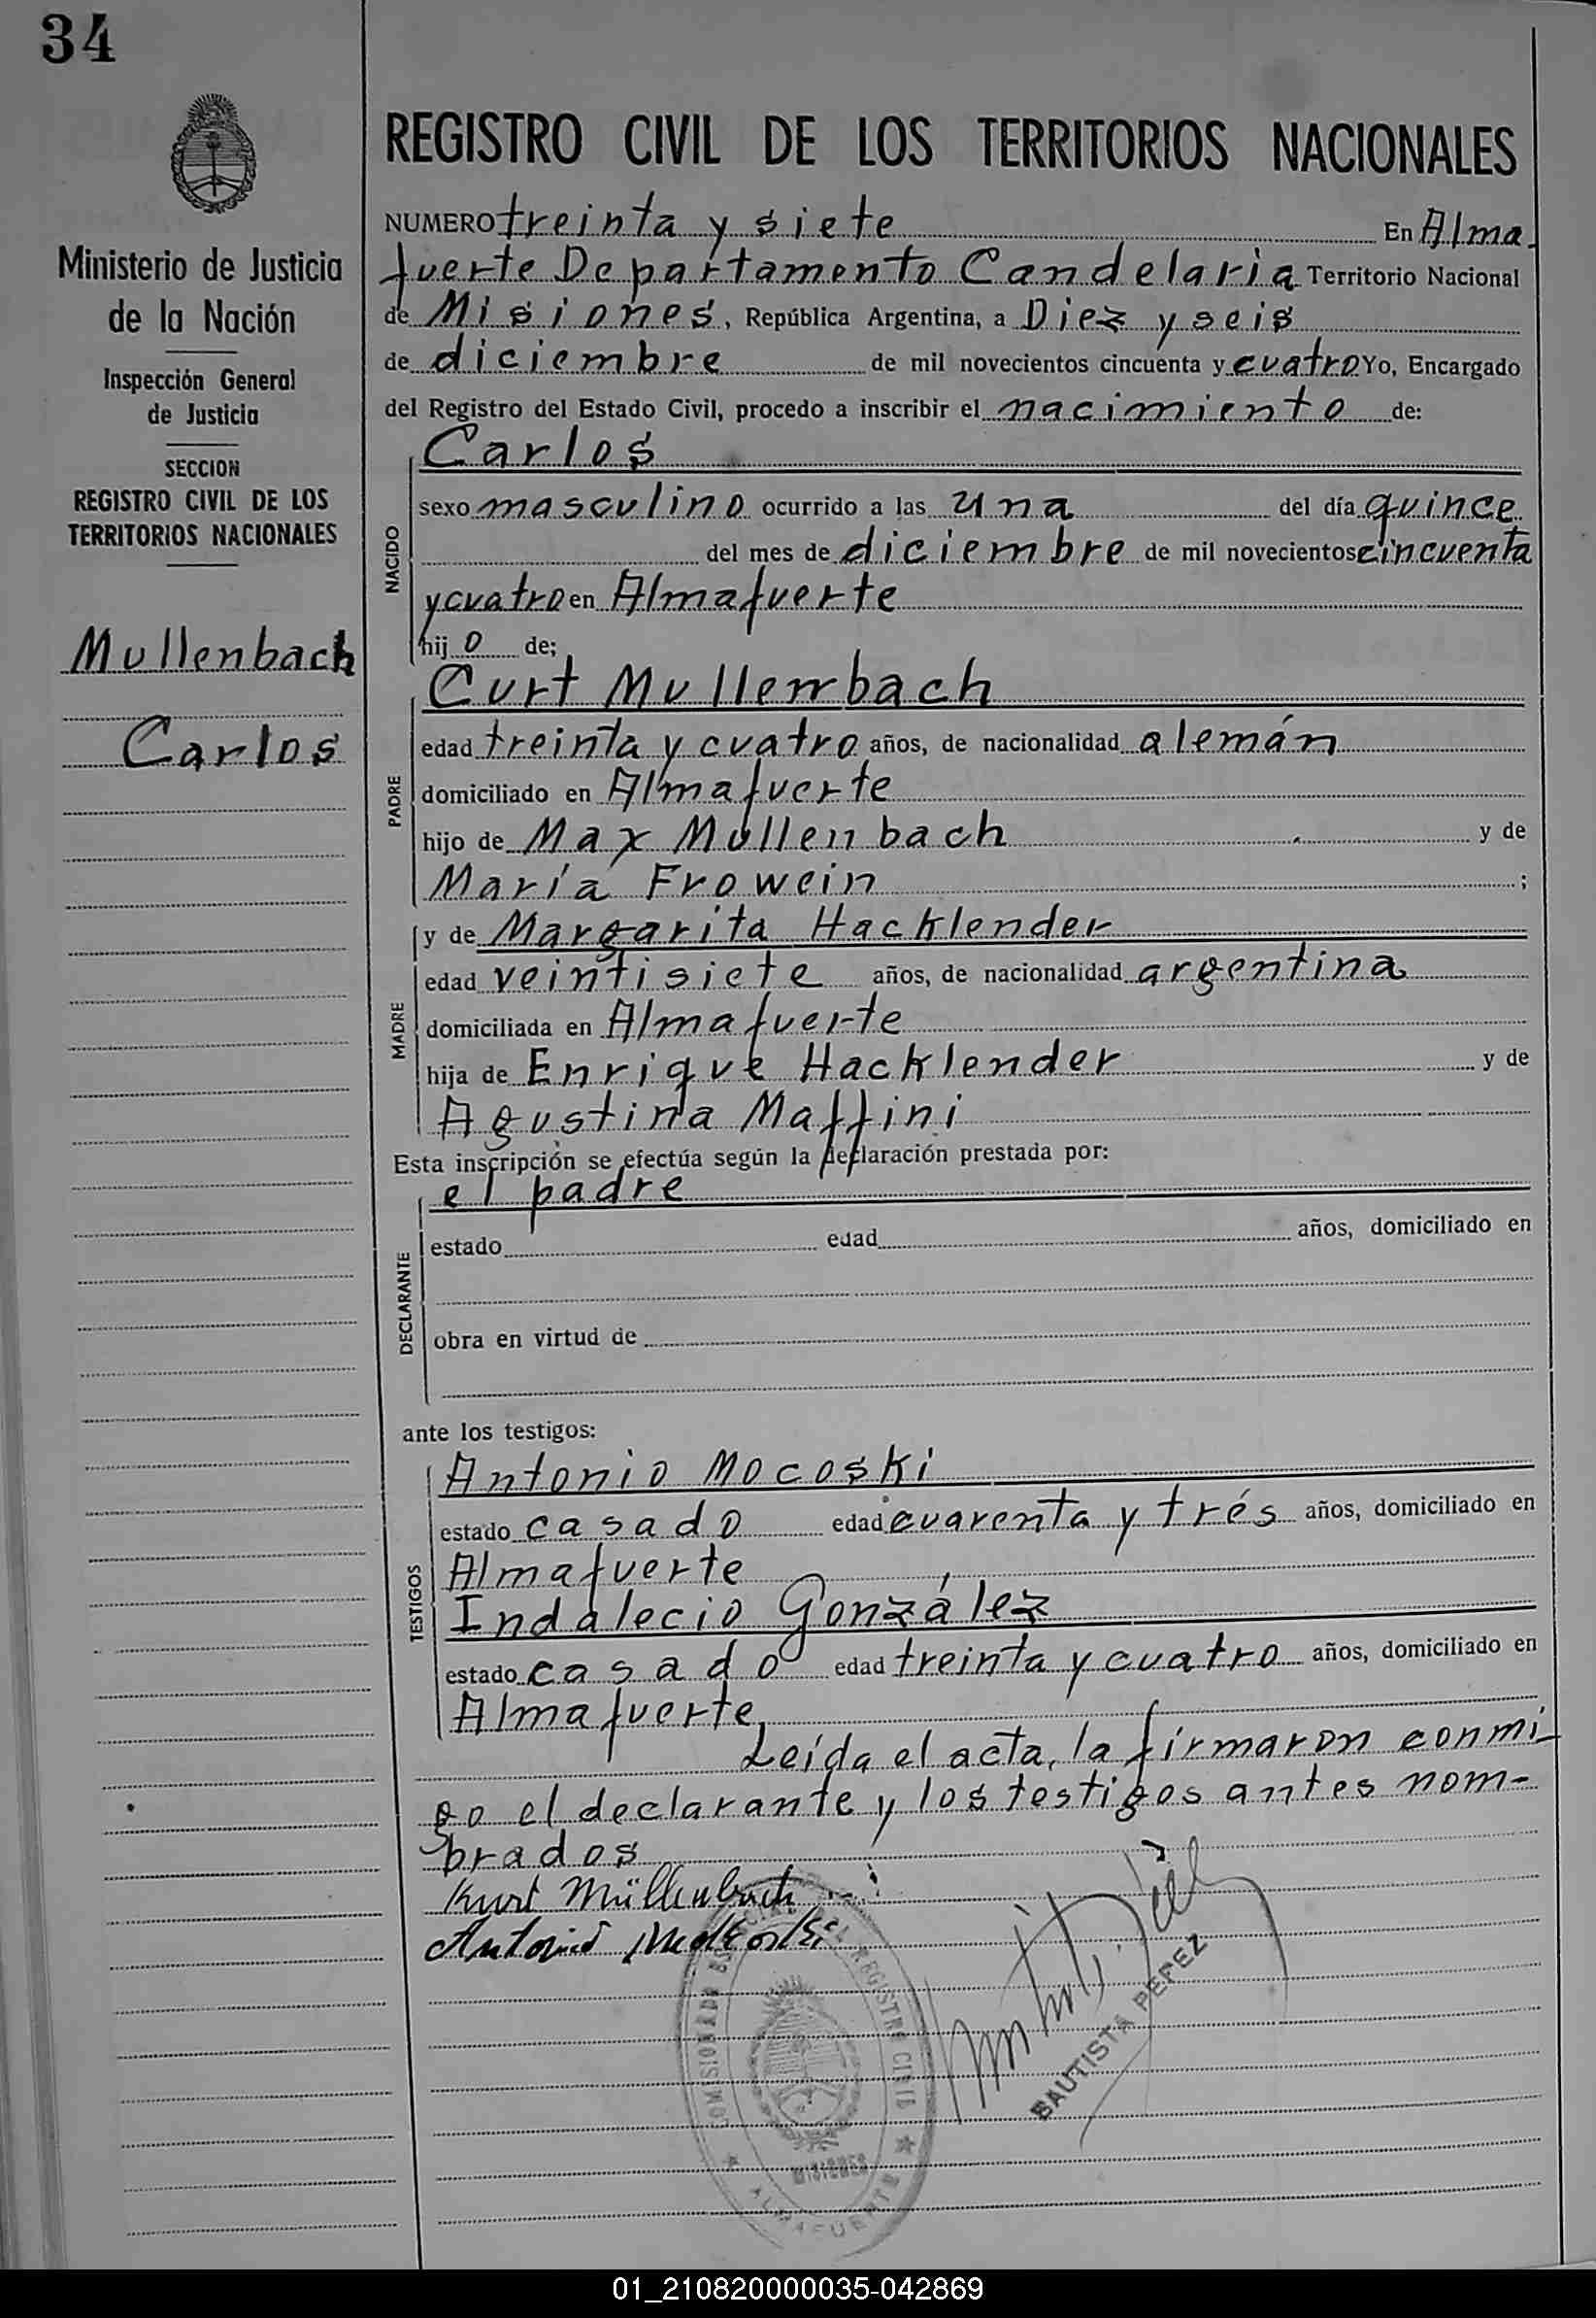 34
Ministerio de Justicia
de la Nación
Inspección General
de Justicia
SECCION
REGISTRO CIVIL DE LOS
TERRITORIOS NACIONALES
Mullenbach
Carlos
REGISTRO CIVIL DE LOS TERRITORIOS NACIONALES
NUMERO treinta y siete En Alma
fuerte Departamento Candelaria Territorio Nacional
de Misiones, República Argentina, a Diez y seis
de diciembre de mil novecientos cincuenta y cuatro Yo, Encargado
del Registro del Estado Civil, procedo a inscribir el nacimiento de:
NACIDO
Carlos
sexo masculino ocurrido a las una del día quince
del mes de diciembre de mil novecientos cincuenta
y cuatro en Almafuerte
hijo de;
PADRE
Curt Mullembach
edad treinta y cuatro años, de nacionalidad alemán
domiciliado en Almafuerte
hijo de Max Mullenbach y de
María Frowein ;
MADRE
y de Margarita Hacklender
edad veintisiete años, de nacionalidad argentina
domiciliada en Almafuerte
hija de Enrique Hacklender y de
Agustina Maffini
Esta inscripción se efectúa según la declaración prestada por:
DECLARANTE
el padre
estado edad años, domiciliado en
obra en virtud de
ante los testigos:
TESTIGOS
Antonio Mocoski
estado casado edad cuarenta y trés años, domiciliado en
Almafuerte
Indalecio González
estado casado edad treinta y cuatro años, domiciliado en
Almafuerte
Leída el acta, la firmaron conmi-
go el declarante y los testigos antes nom-
brados
Kurt Müllenbach
Antonio
BAUTISTA PEREZ
REGISTRO CIVIL
MISIONES
ALMAFUERTE
01_210820000035-042869